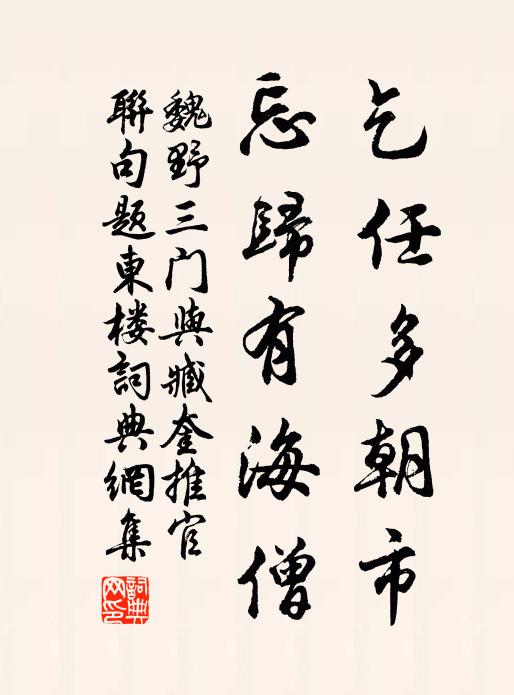 乞任多朝市
忘歸有海僧
魏野三门與臧奎推官
聯句題東楼詞典網集
詞典网印